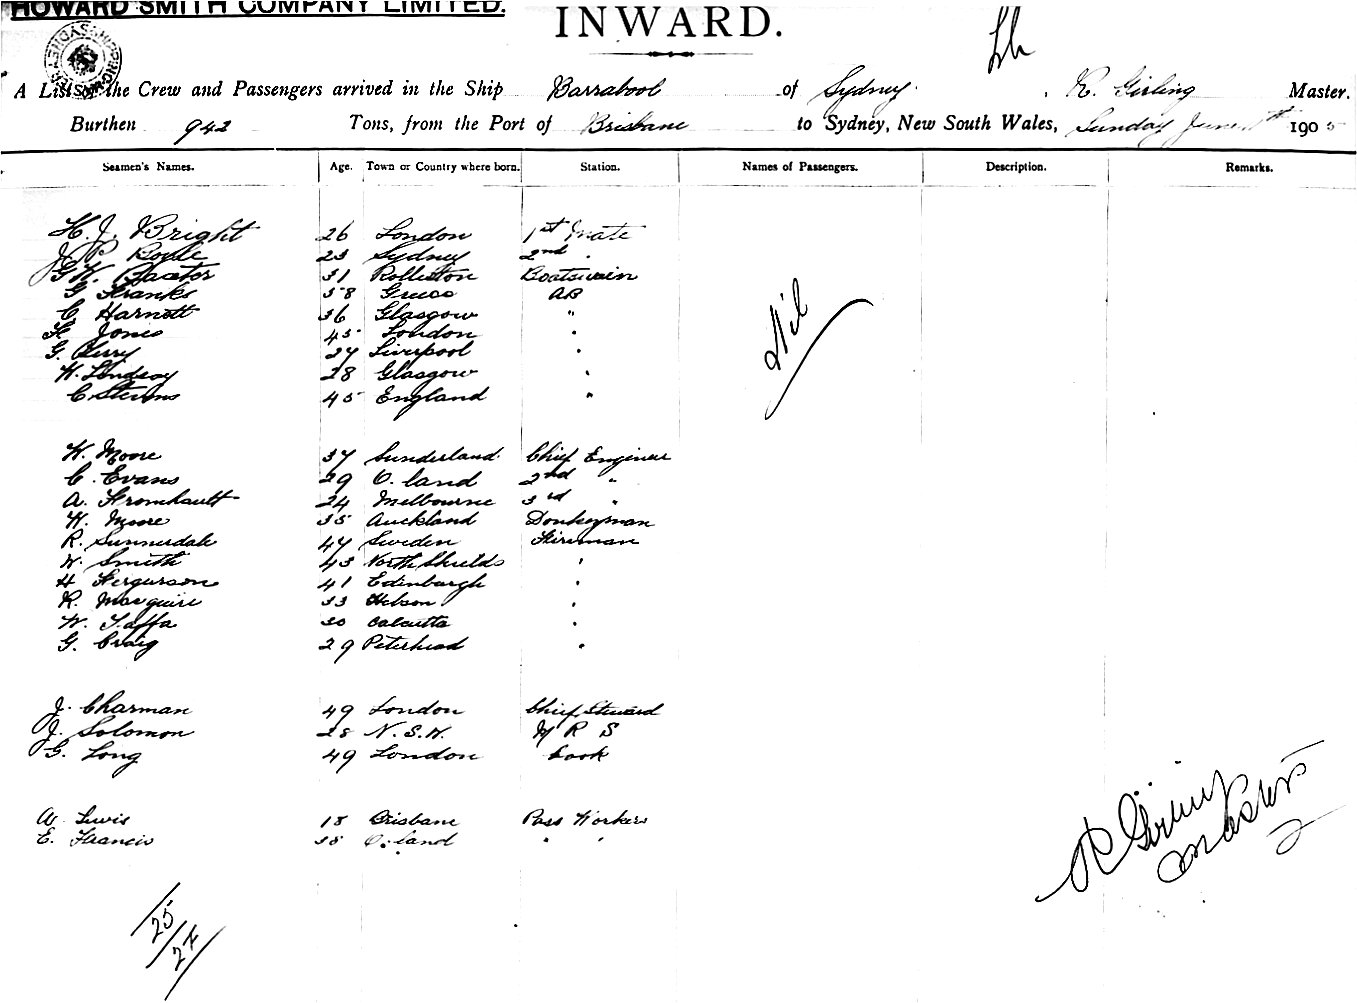 HOWARD SMITH COMPANY LIMITED.
INWARD.
A List of the Crew and Passengers arrived in the Ship Barrabool of Sydney. R. Girling Master.
Burthen 942 Tons, from the Port of Brisbane to Sydney, New South Wales, Sunday June 190
Seamen's Names. Age. Town or Country where born. Station. Names of Passengers. Description. Remarks.
H. J. Bright 26 London 1st Mate
J P Boyle 23 Sydney 2nd "
G W. Baxter 31 Rolleston Boatswain
G. Franks 38 Greece AB
C. Harnett 36 Glasgow "
F. Jones 45 London "
G. Perry 27 Liverpool "
W. Lindsay 28 Glasgow "
C Stevens 45 England "
Nil
W. Moore 37 Sunderland. Chief Engineer
C. Evans 29 Q. land 2nd "
A. Fromhault 24 Melbourne 3rd "
W. Moore 35 Auckland Donkeyman
R. Sunnerdale 47 Sweden Fireman
W. Smith 43 North Shields "
H Fergurson 41 Edinburgh "
R. Macquire 33 Hobson "
W. Taffa 30 Calcutta "
G. Craig 29 Peterhead "
J. Charman 49 London Chief Steward
J. Solomon 28 N.S.W. M R S
G. Long 49 London Cook
A Lewis 18 Brisbane Pass Workers
E. Francis 38 Q. land " "
R Girling
Master
25
27